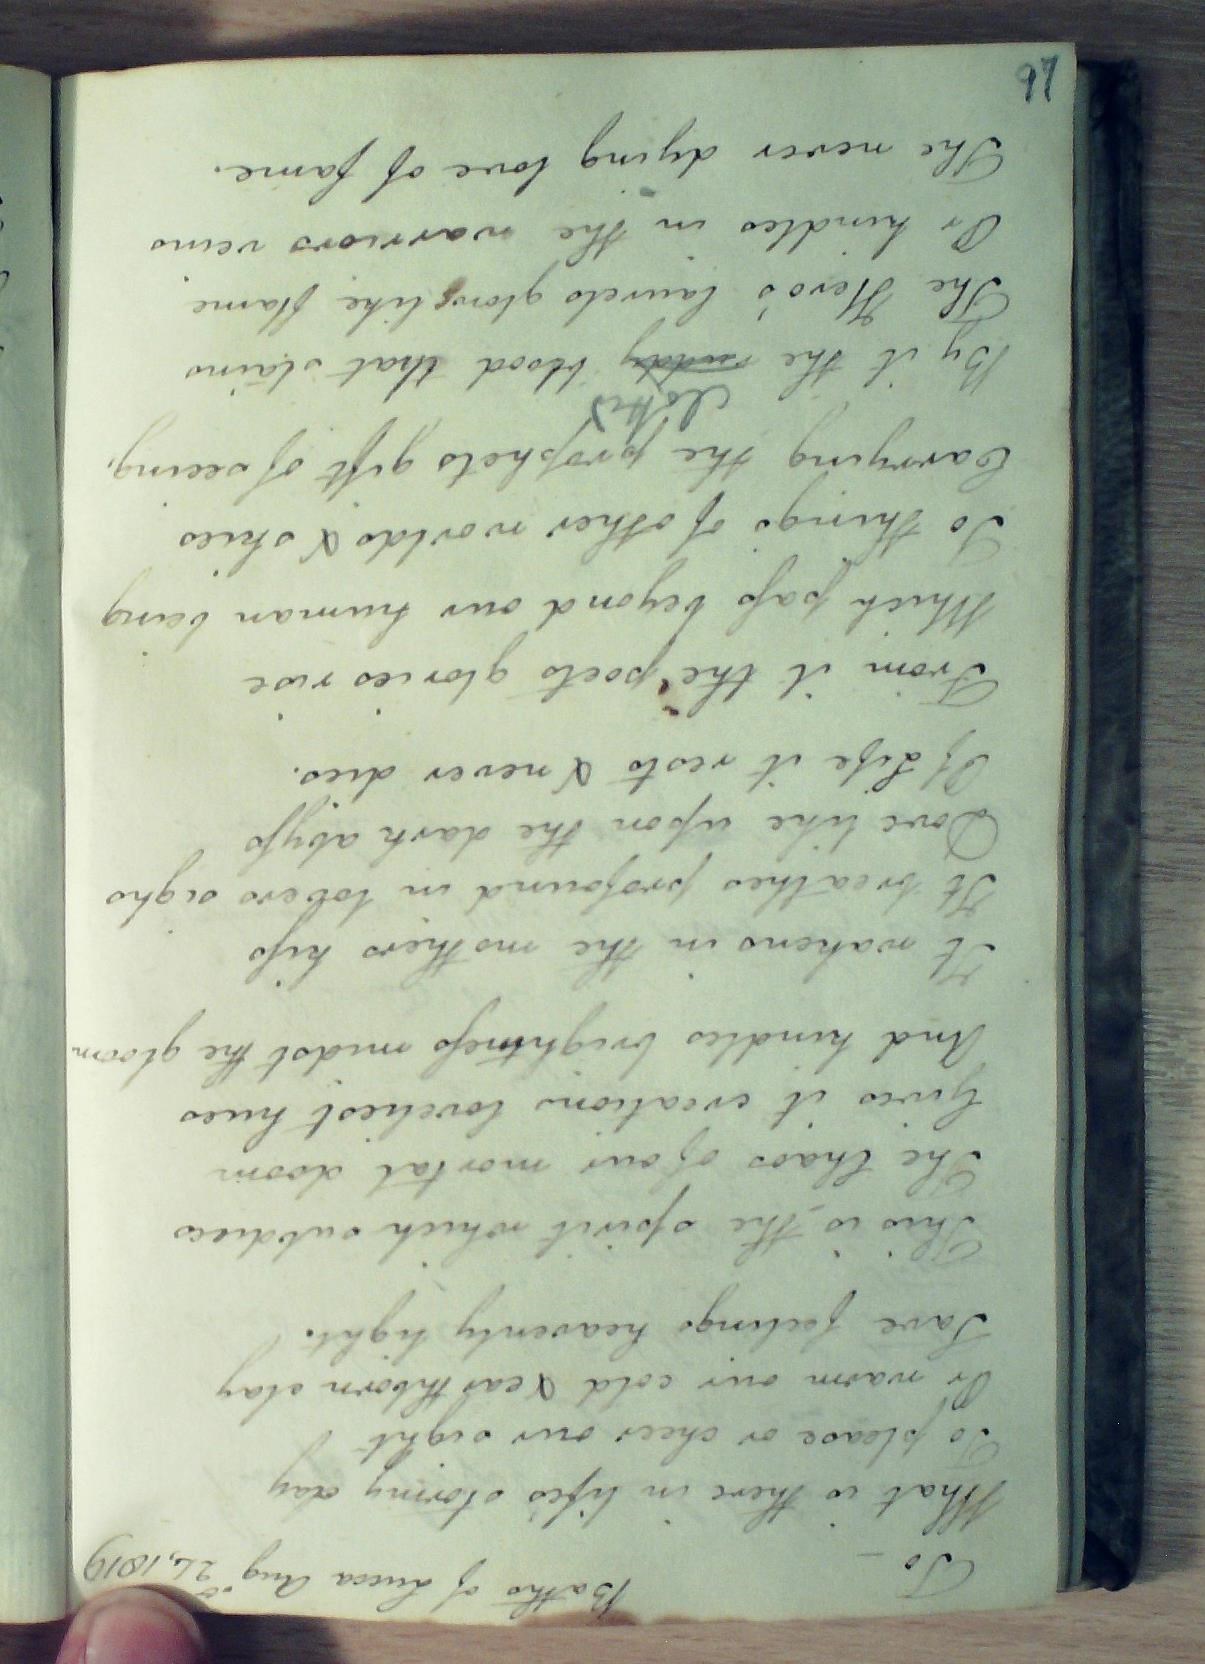 To —
Baths of Lucca Aug 26, 1819
What is there in life's stormy day
To please or cheer our sight
Or warm our cold & earthborn clay
Save feelings heavenly light.
This is the spirit which subdues
The Chaos of our mortal doom
Gives it creations loveliest hues
And kindles brightness midst the gloom
It wakens in the mothers kiss
It breathes profound in lovers sighs
Dove like upon the dark abyss
Of Life it rests & never dies.
From it the poets glories rise
Which pass beyond our human being
To things of other worlds & skies
Carrying the prophets gift of seeing.
By it the blood that stains
The Hero's laurels glows like flame
Or kindles in the warriors veins
The never dying love of fame.
97